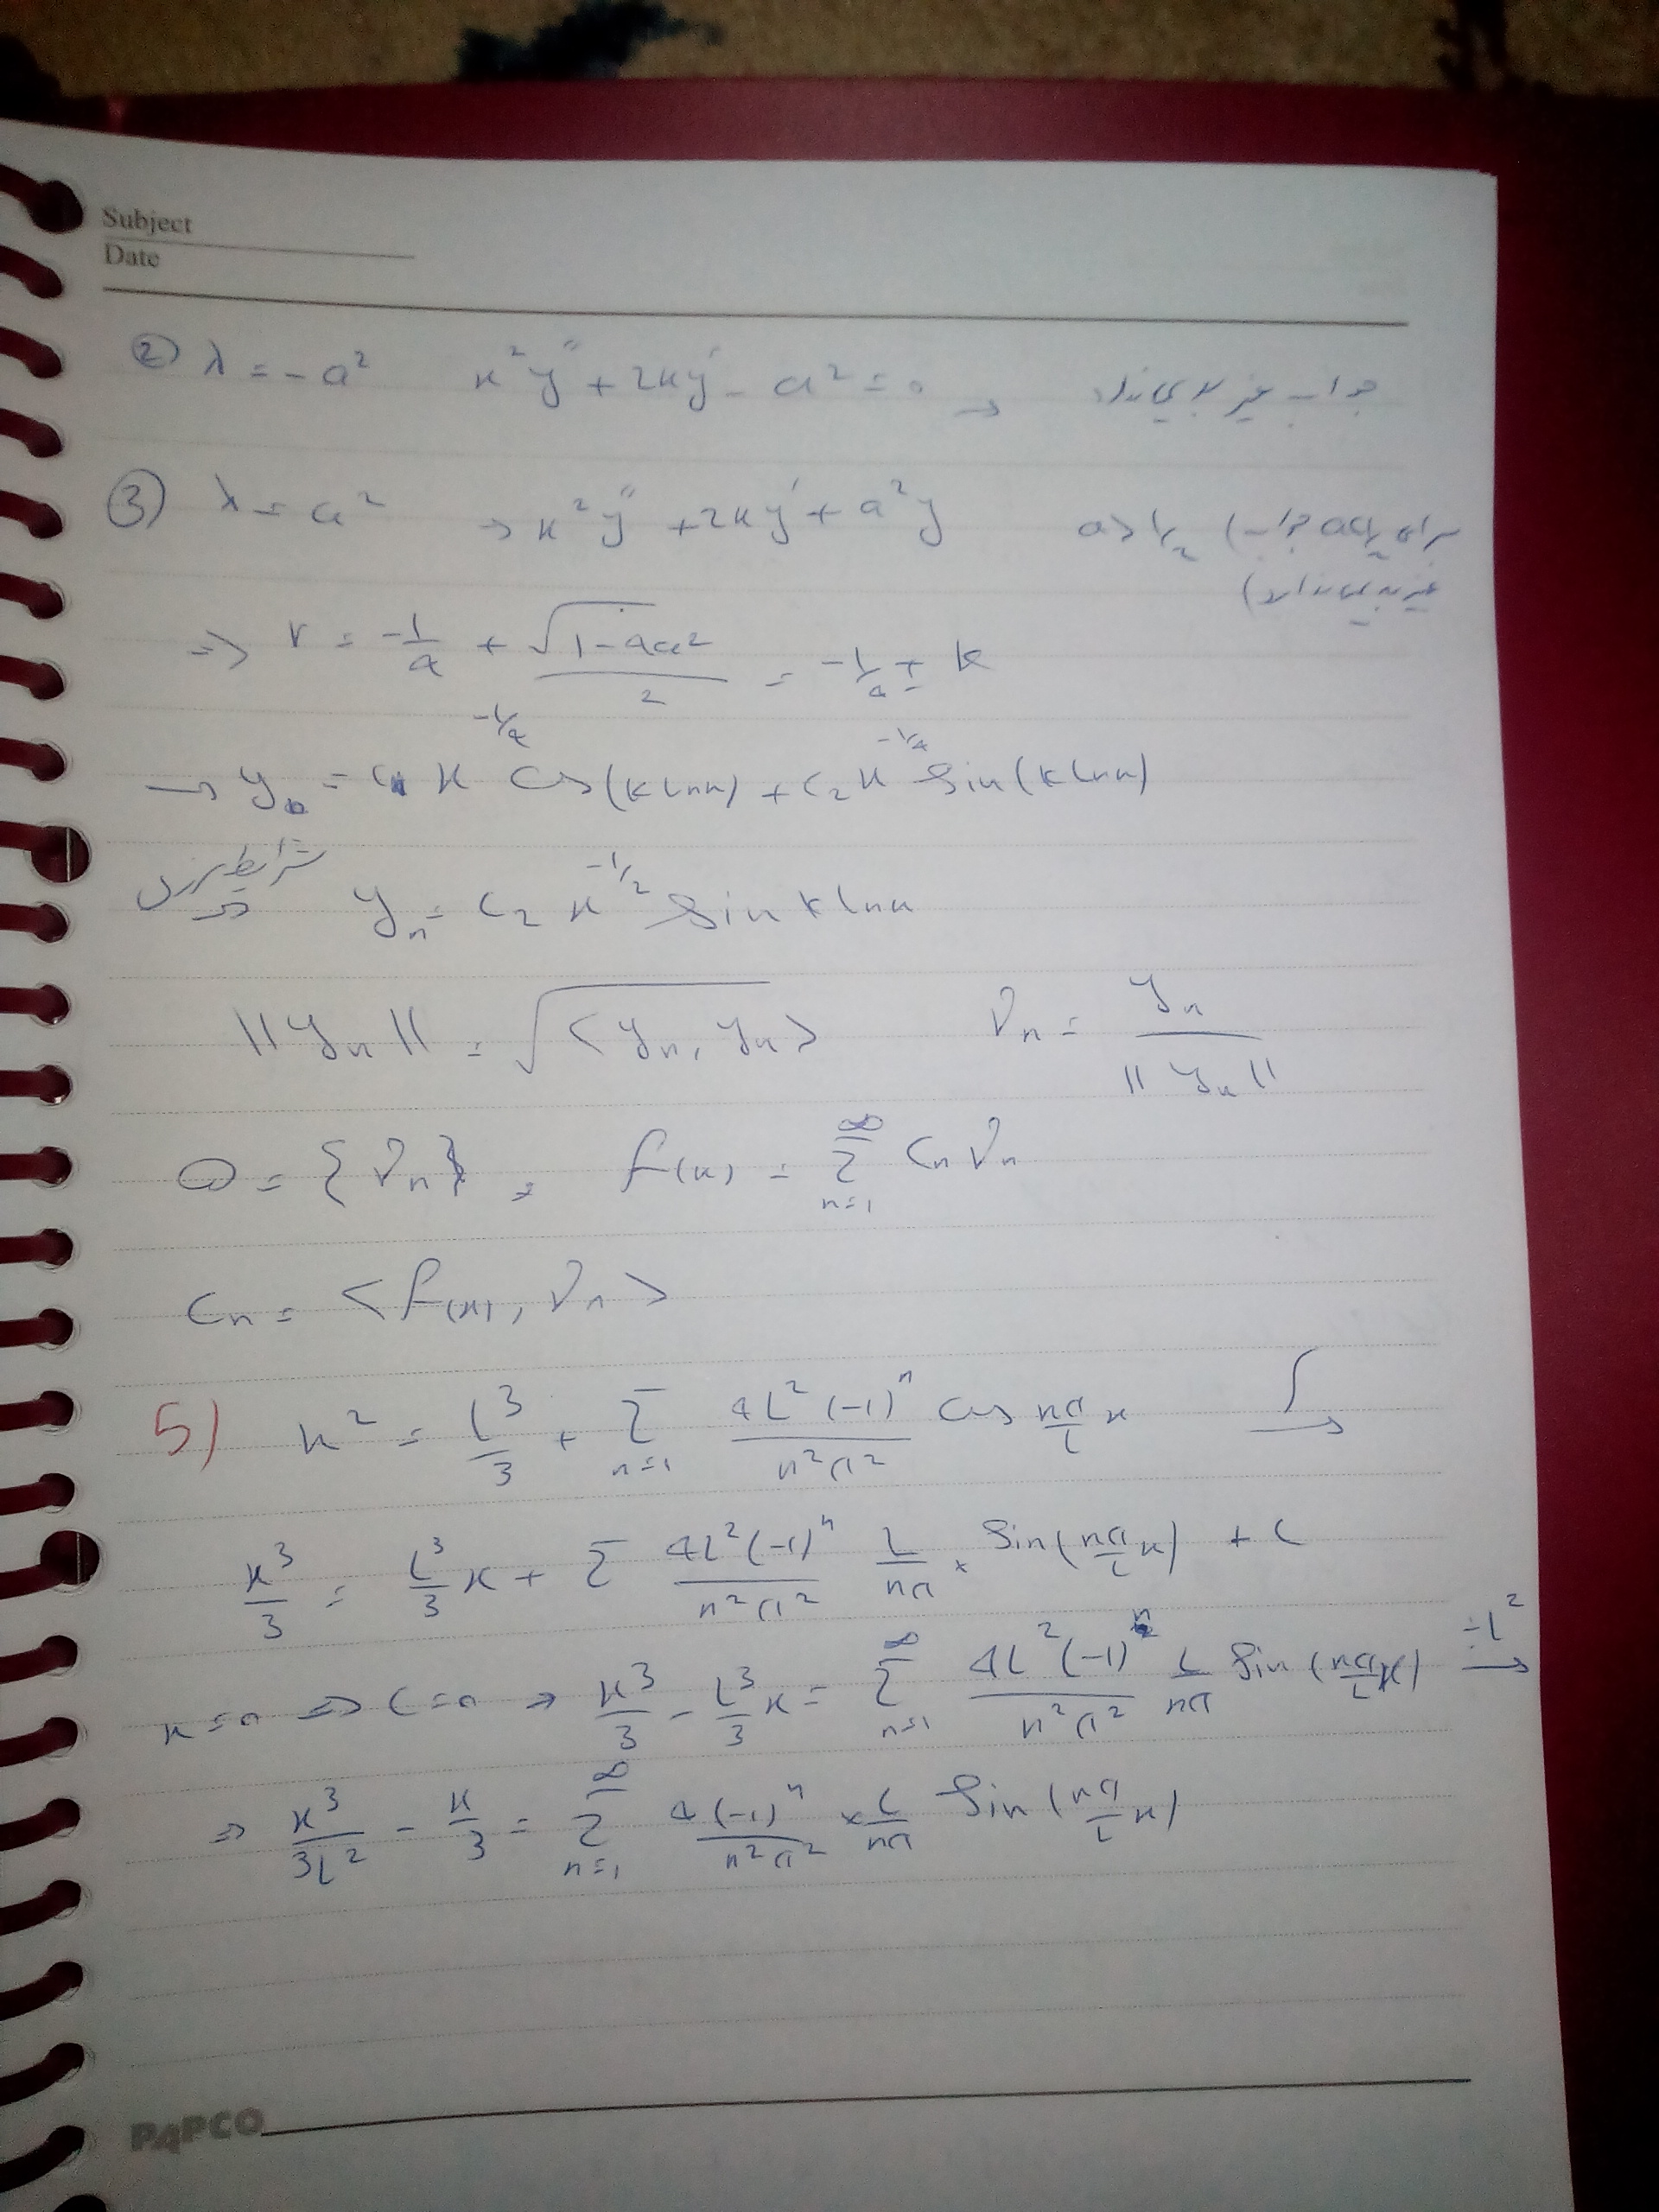 Subject
Date
② λ = -a² x²y″ + 2xy′ - a² = 0 → جواب غیر بدیهی ندارد
③ λ = a² → x²y″ + 2xy′ + a²y a > 1/2 (برای a<1/2 جواب
غیر بدیهی ندارد)
⇒ r = -1/4 + √(1-4a²)/2 = -1/4 ± k
→ y = c₁ x^(-1/4) cos(k ln x) + c₂ x^(-1/4) sin(k ln x)
شرایط مرزی yₙ = c₂ x^(-1/2) sin k ln x
||yₙ|| = √<yₙ, yₙ> νₙ = yₙ/||yₙ||
= {νₙ}, f(x) = Σ_{n=1}^∞ cₙ νₙ
cₙ = <f(x), νₙ>
5) x² = L³/3 + Σ_{n=1} 4L²(-1)ⁿ/(n²π²) cos nπ/L x ∫→
x³/3 = L³/3 x + Σ 4L²(-1)ⁿ/(n²π²) L/nπ × sin(nπ/L x) + C
x=0 ⇒ C=0 → x³/3 - L³/3 x = Σ_{n=1}^∞ 4L²(-1)ⁿ/(n²π²) L/nπ sin(nπ/L x) ÷L²→
⇒ x³/3L² - x/3 = Σ_{n=1}^∞ 4(-1)ⁿ/(n²π²) × L/nπ sin(nπ/L x)
PAPCO